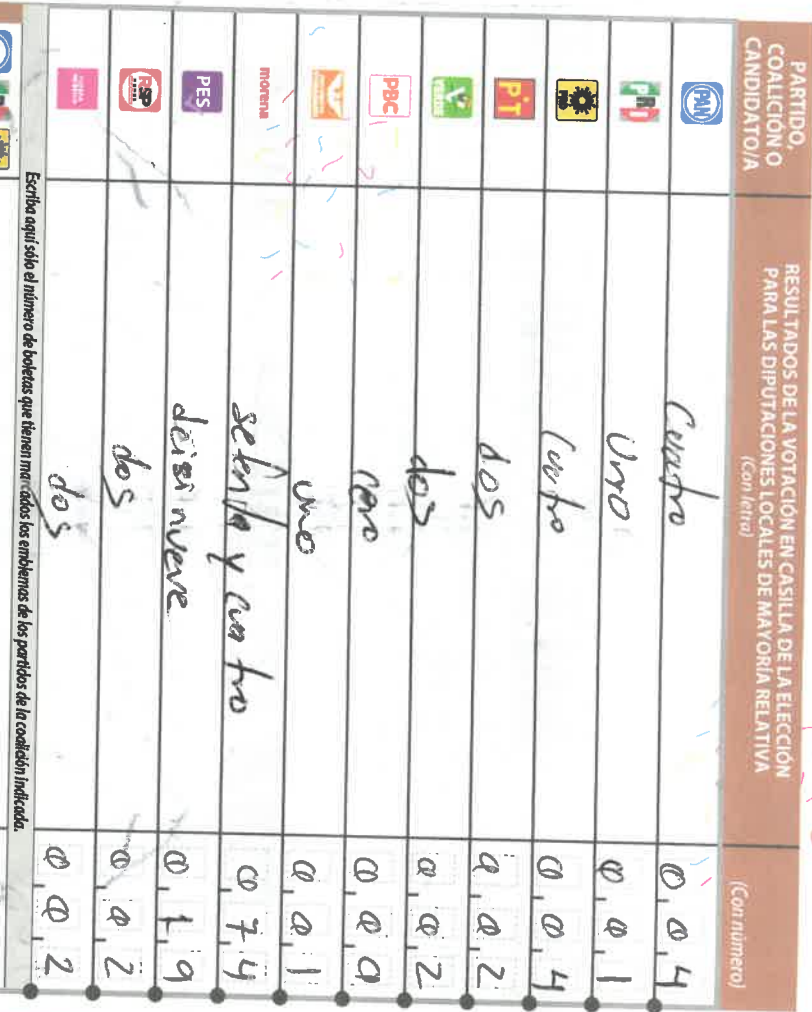 PARTIDO,
COALICIÓN O
CANDIDATO/A
RESULTADOS DE LA VOTACIÓN EN CASILLA DE LA ELECCIÓN
PARA LAS DIPUTACIONES LOCALES DE MAYORÍA RELATIVA
(Con letra)
(Con número)
PAN Cuatro 0 0 4
PRD Uno 0 0 1
Cuatro 0 0 4
PT dos 0 0 2
VERDE dos 0 0 2
PBC cero 0 0 0
uno 0 0 1
morena setenta y cuatro 0 7 4
PES deisinueve 0 1 9
RSP dos 0 0 2
dos 0 0 2
Escriba aquí sólo el número de boletas que tienen marcados los emblemas de los partidos de la coalición indicada.